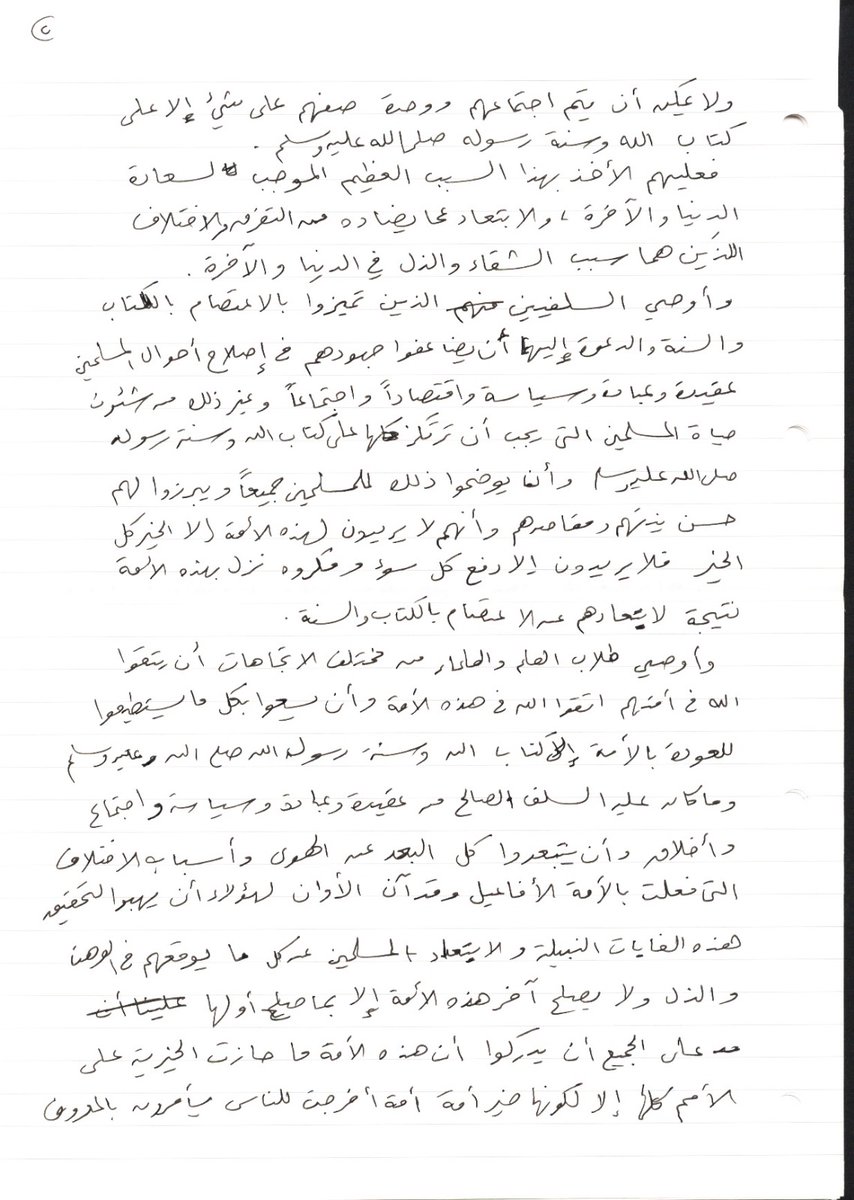 ٢
ولا يمكن أن يتم اجتماعهم ووحدة صفهم على شيئ إلا على
كتاب الله وسنة رسوله صلى الله عليه وسلم .
فعليهم الأخذ بهذا السبب العظيم الموجب لسعادة
الدنيا والآخرة ، والابتعاد عما يضاده من التفرق والاختلاف
اللذين هما سبب الشقاء والذل في الدنيا والآخرة .
وأوصي السلفيين منهم الذين تميزوا بالاعتصام بالكتاب
والسنة والدعوة إليها أن يضاعفوا جهودهم في إصلاح أحوال المسلمين
عقيدة وعبادة وسياسة واقتصاداً واجتماعاً وغير ذلك من شئون
حياة المسلمين التي يجب أن ترتكز كلها على كتاب الله وسنة رسوله
صلى الله عليه وسلم وأن يوضحوا ذلك للمسلمين جميعاً ويبرزوا لهم
حسن نيتهم ومقاصدهم وأنهم لا يريدون لهذه الأمة إلا الخير كل
الخير فلا يريدون إلا دفع كل سوء ومكروه نزل بهذه الأمة
نتيجة لابتعادهم عن الاعتصام بالكتاب والسنة .
وأوصي طلاب العلم والعلماء من مختلف الاتجاهات أن يتقوا
الله في أمتهم اتقوا الله في هذه الأمة وأن يسعوا بكل ما يستطيعوا
للعودة بالأمة إلى كتاب الله وسنة رسول الله صلى الله عليه وسلم
وما كان عليه السلف الصالح من عقيدة وعبادة وسياسة واجتماع
وأخلاق وأن يبتعدوا كل البعد عن الهوى وأسباب الاختلاف
التي فعلت بالأمة الأفاعيل وقد آن الأوان لهؤلاء أن يهبوا لتحقيق
هذه الغايات النبيلة والابتعاد بالمسلمين عن كل ما يوقعهم في الوهن
والذل ولا يصلح آخر هذه الأمة إلا بما صلح أولها علينا أن
على الجميع أن يدركوا أن هذه الأمة ما حازت الخيرية على
الأمم كلها إلا لكونها خير أمة أمة أخرجت للناس يأمرون بالمعروف